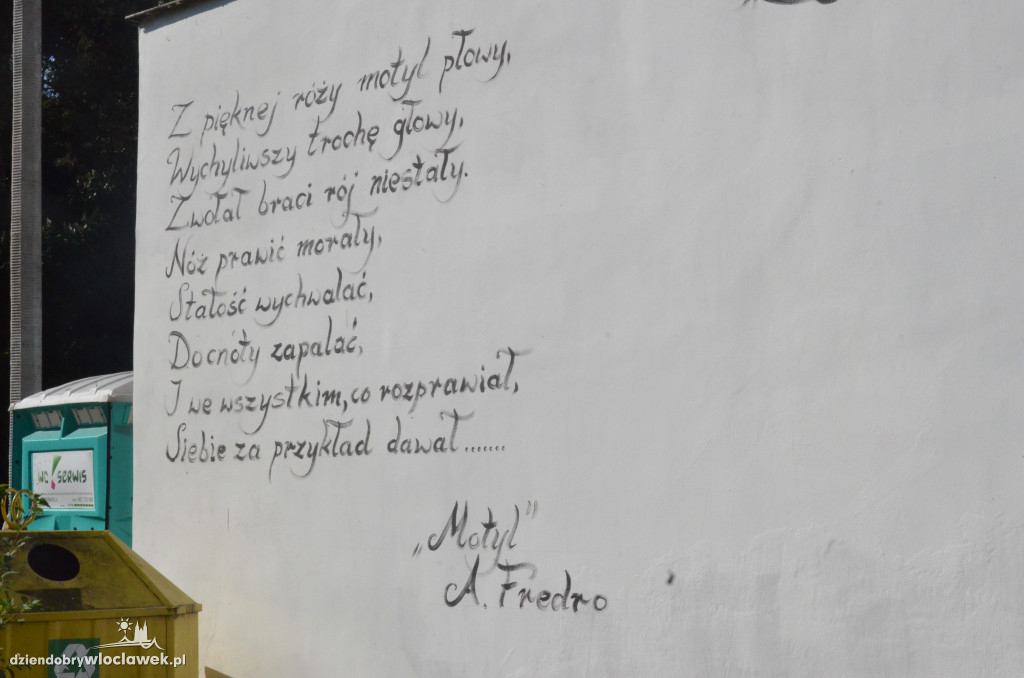 Z pięknej róży motyl płowy,
Wychyliwszy trochę głowy,
Zwołał braci rój niestały.
Nóż prawić morały,
Stałość wychwalać,
Do cnóty zapalać,
I we wszystkim, co rozprawiał,
Siebie za przykład dawał.......
„Motyl”
A. Fredro
WC SERWIS
dziendobrywloclawek.pl